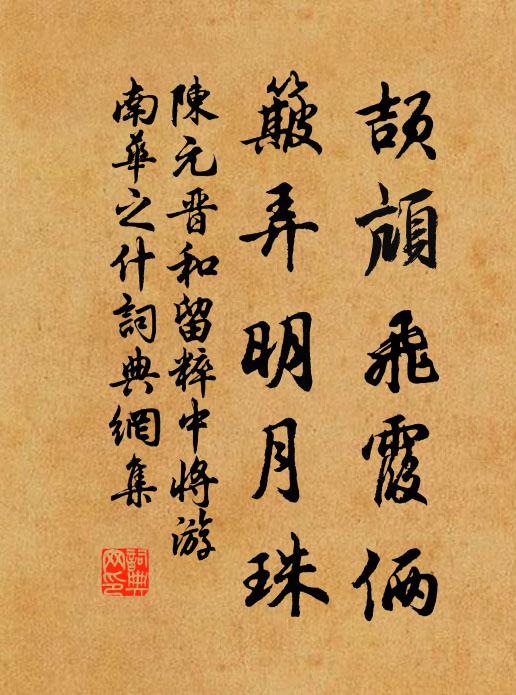 頡頏飛霞佩
簸弄明月珠
陳元晋和留粹中將游
南華之什詞典網集
詞典
网印